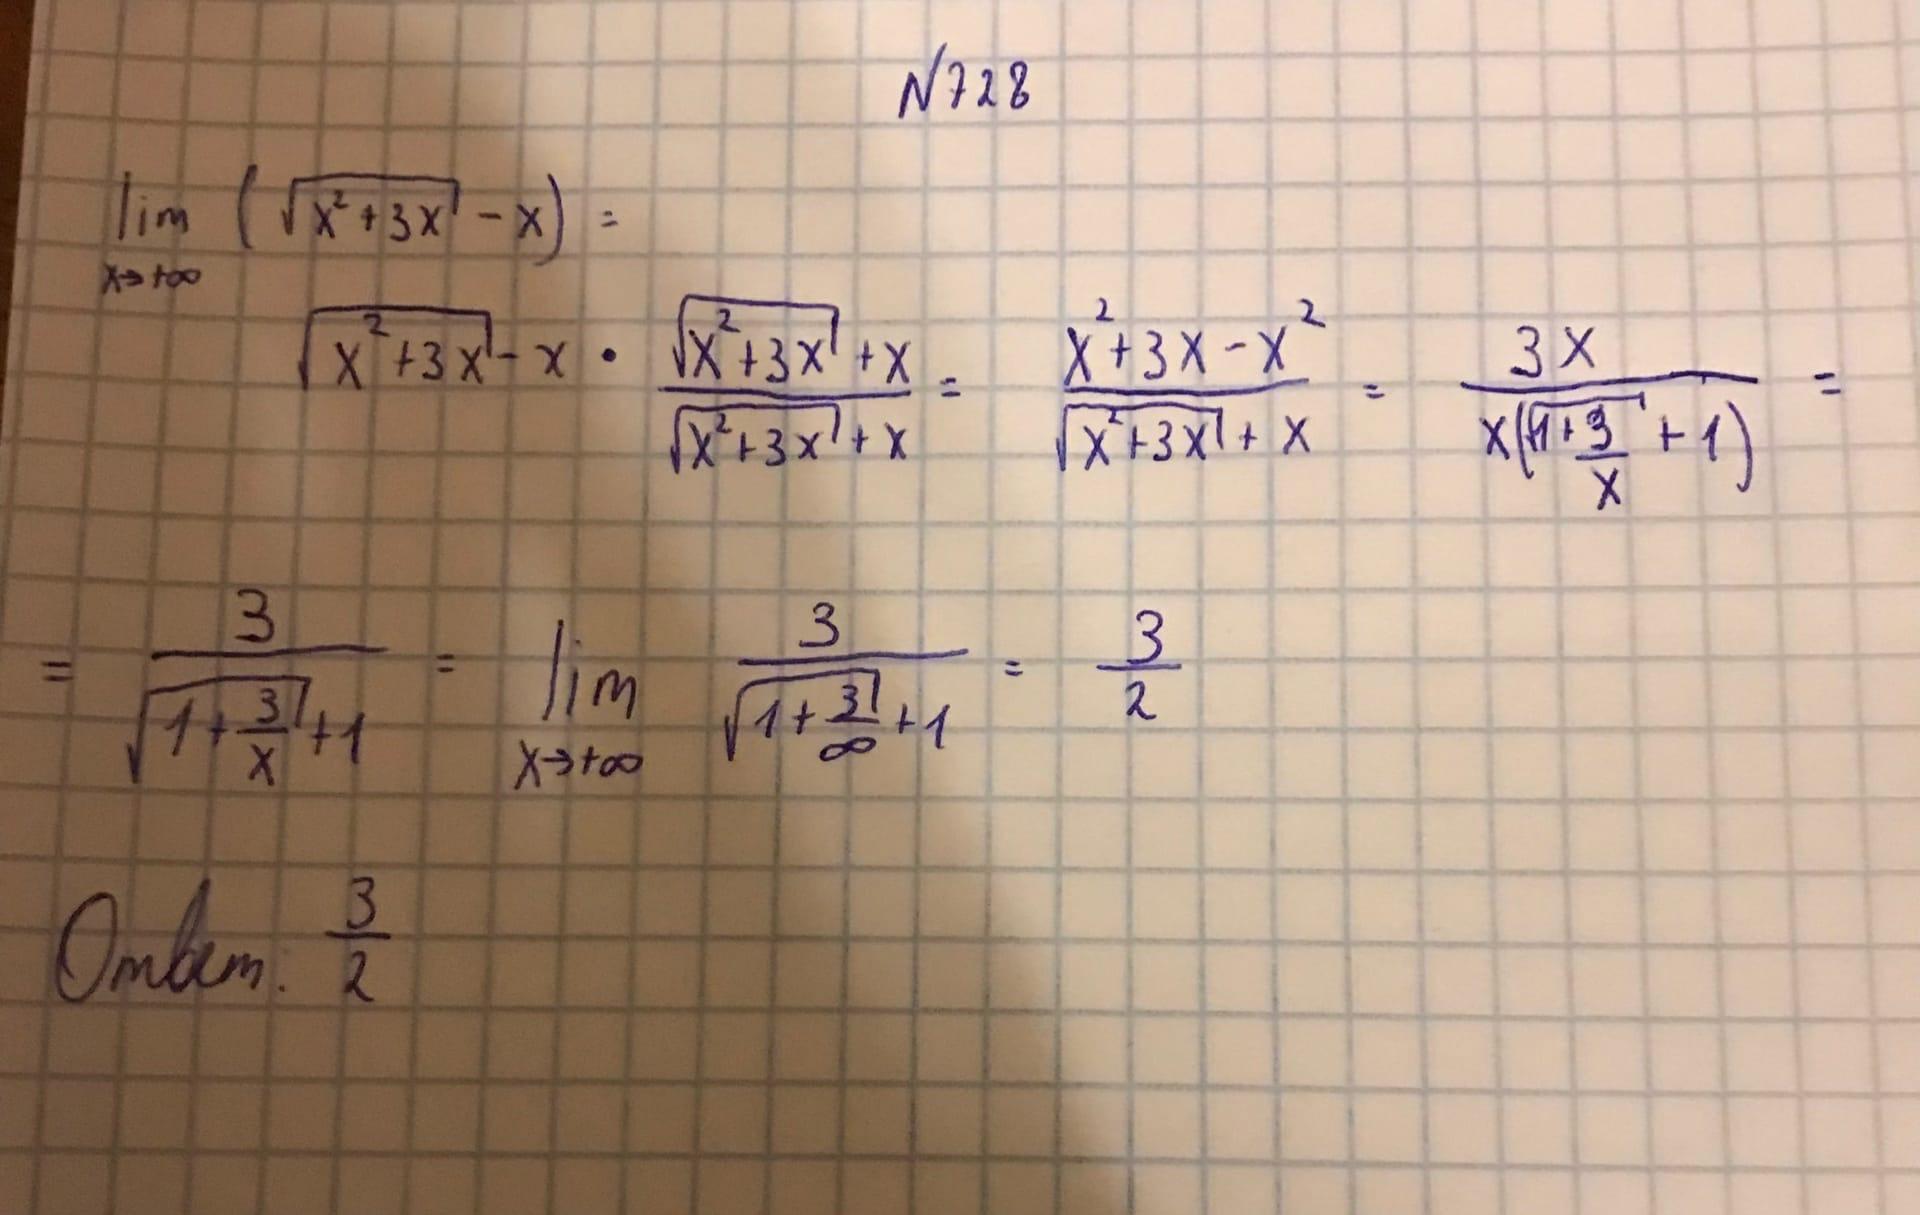 N728
lim x→+∞ (√(x²+3x) - x) =
√(x²+3x) - x • (√(x²+3x) + x)/(√(x²+3x) + x) = (x²+3x-x²)/(√(x²+3x) + x) = 3x/(x(√(1+3/x) + 1)) =
= 3/(√(1+3/x) + 1) = lim x→+∞ 3/(√(1+3/∞) + 1) = 3/2
Ответ: 3/2